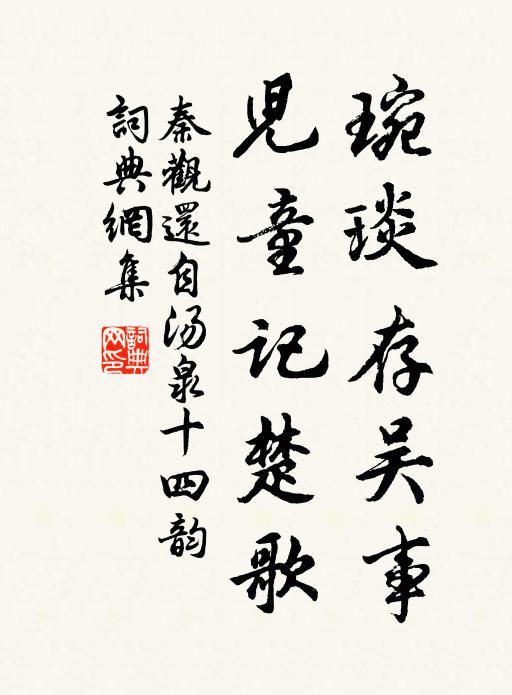 琬琰存吴事
児童记楚歌
秦觀還自汤泉十四韵
詞典網集
詞典网印